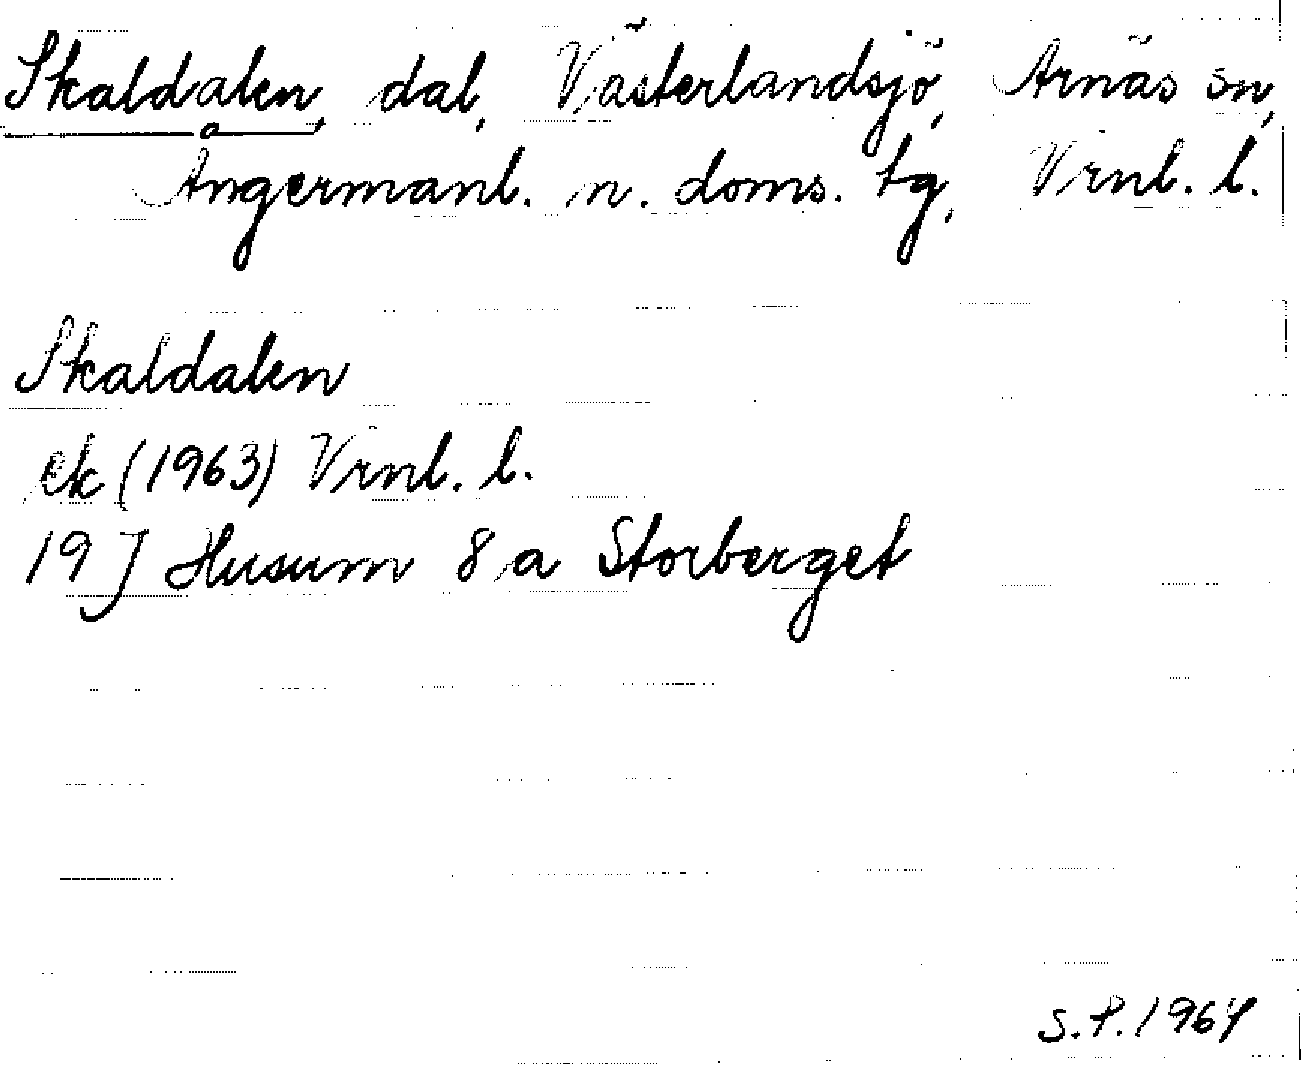 Skaldalen, dal, Västerlandsjö, Arnäs sn,
Ångermanl. n. doms. tg, Vrnl. l.
Skaldalen
ek (1963) Vrnl. l.
19 J Husum 8 a Storberget
S.P. 1964